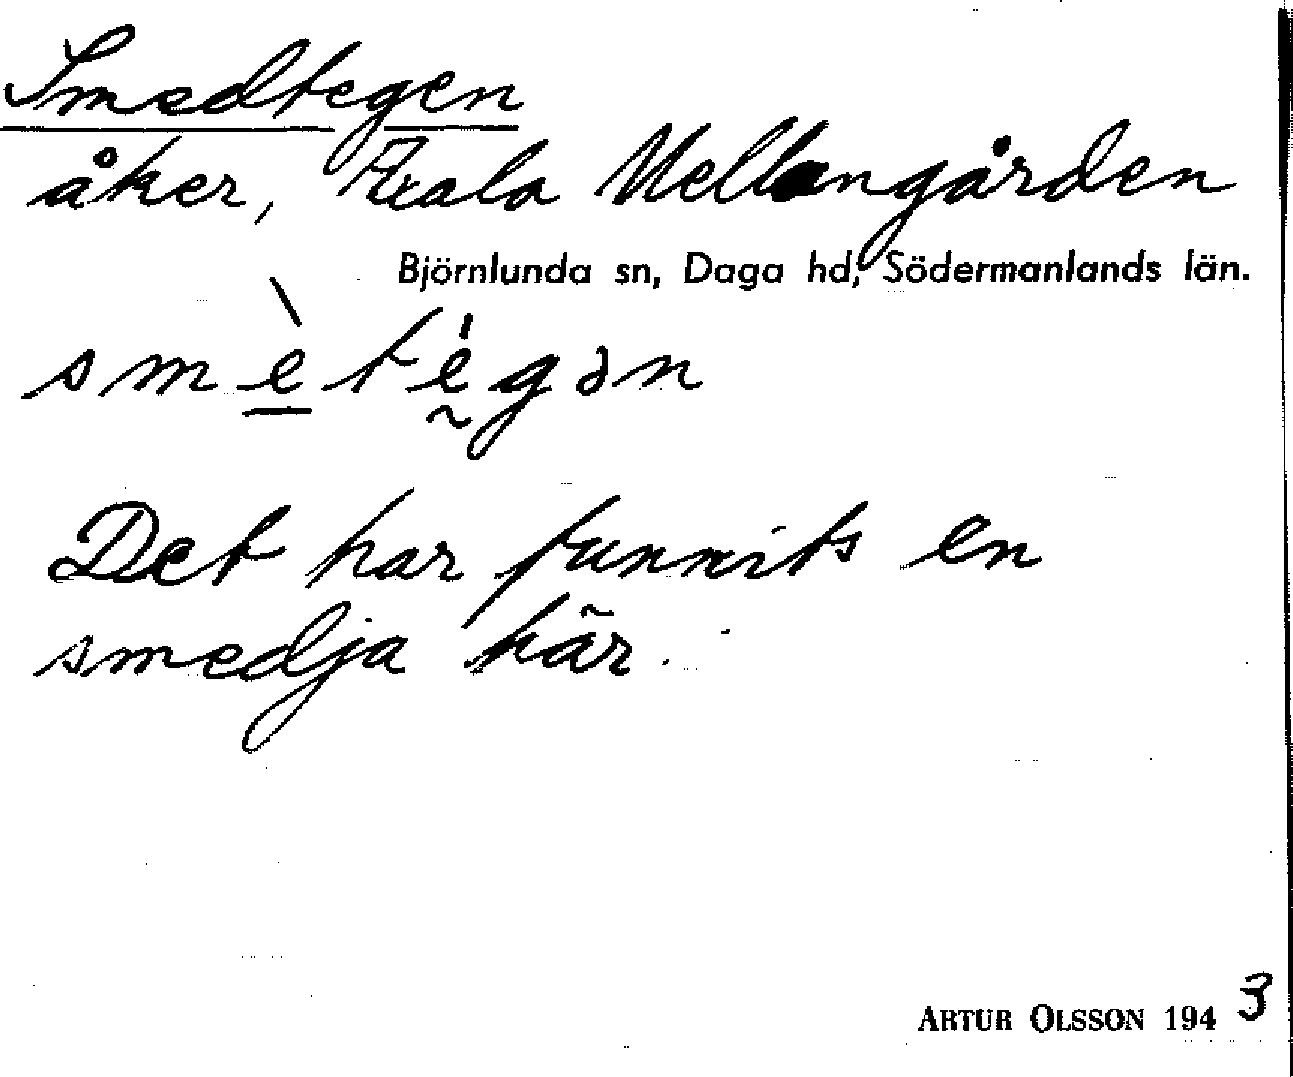 Smedtegen
åker, Axala Mellangården
Björnlunda sn, Daga hd, Södermanlands län.
smè̲tḛ́gən
Det har funnits en
smedja här.
ARTUR OLSSON 1943